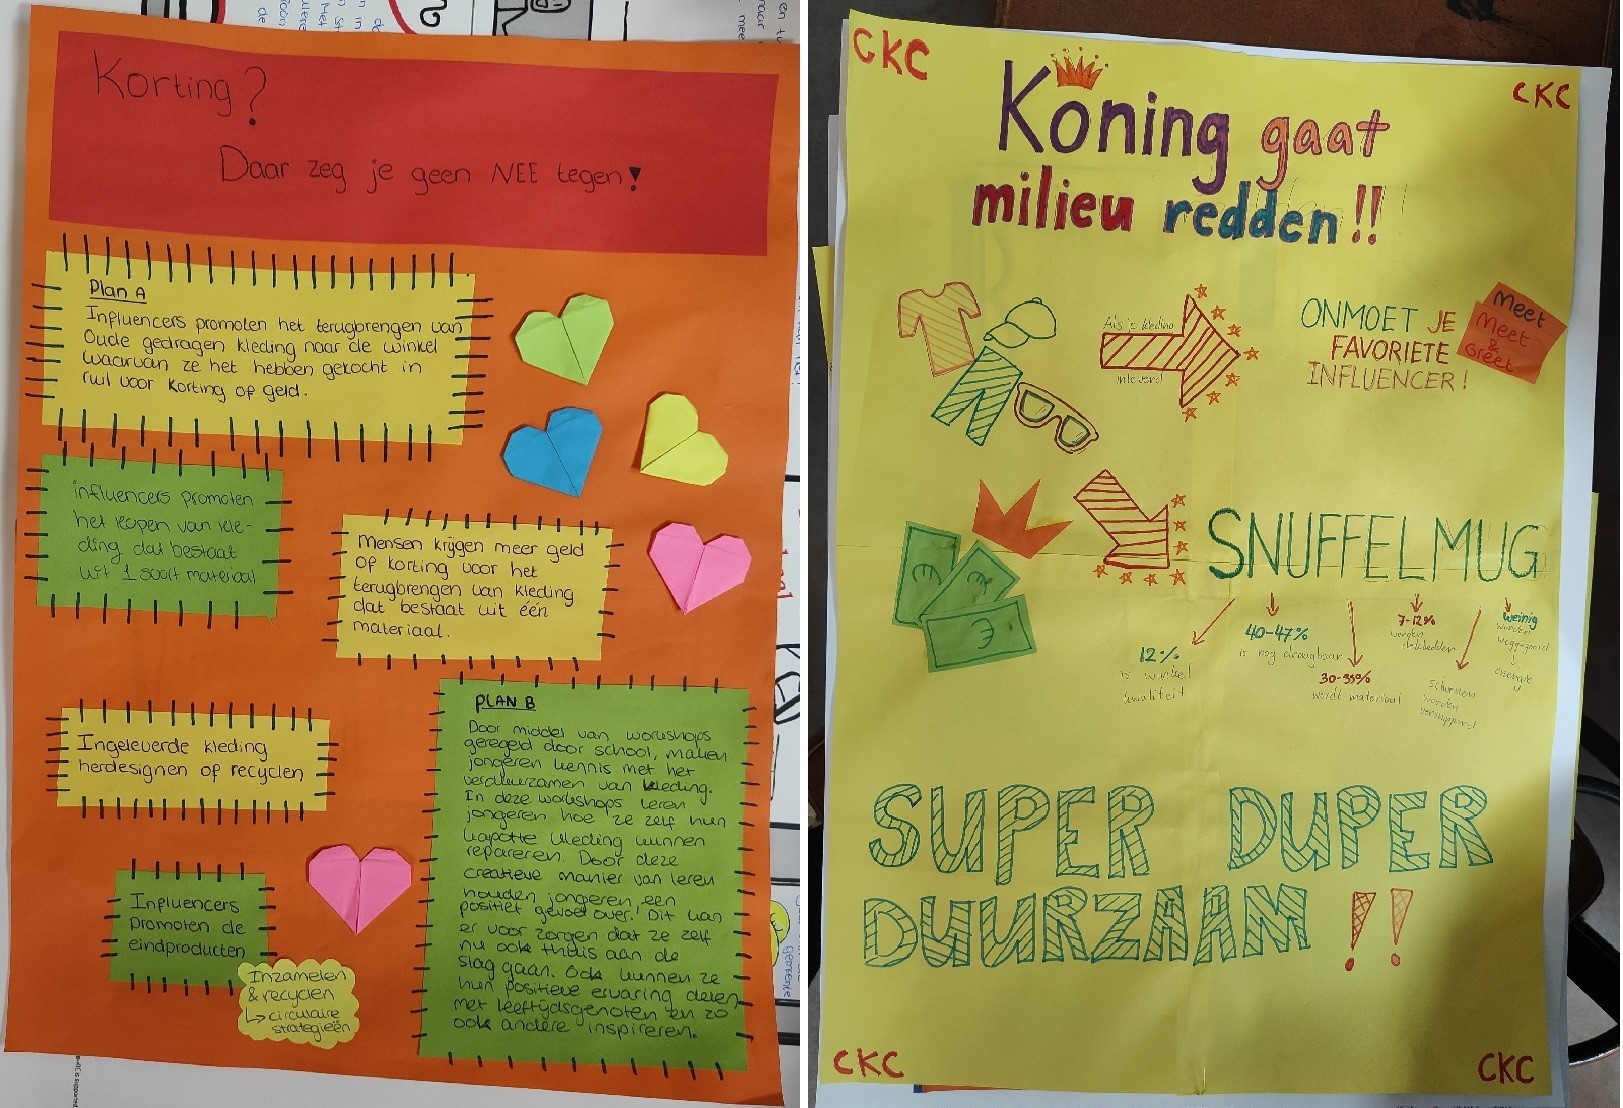 Korting?
Daar zeg je geen NEE tegen!
Plan A
Influencers promoten het terugbrengen van
Oude gedragen kleding naar de winkel
waarvan ze het hebben gekocht in
ruil voor korting of geld.
influencers promoten
het kopen van kle-
ding dat bestaat
uit 1 soort materiaal
Mensen krijgen meer geld
of korting voor het
terugbrengen van kleding
dat bestaat uit één
materiaal.
Ingeleverde kleding
herdesignen of recyclen
Influencers
promoten de
eindproducten
Inzamelen
& recyclen
↳ circulaire
strategieën
PLAN B
Door middel van workshops
geregeld door school, maken
jongeren kennis met het
verduurzamen van kleding.
In deze workshops leren
jongeren hoe ze zelf hun
kapotte kleding kunnen
repareren. Door deze
creatieve manier van leren
houden jongeren een
positief gevoel over! Dit kan
er voor zorgen dat ze zelf
nu ook thuis aan de
slag gaan. Ook kunnen ze
hun positieve ervaring delen
met leeftijdsgenoten en zo
ook andere inspireren.
CKC
CKC
Koning gaat
milieu redden!!
Als je kleding
inleverd
ONMOET JE
FAVORIETE
INFLUENCER!
Meet
Meet
&
Greet
SNUFFELMUG
12%
is winkel
kwaliteit
40-47%
is nog draagbaar
30-35%
wordt materiaal
7-12%
worden
schoenen
worden
weinig
worden
SUPER DUPER
DUURZAAM!!
CKC
CKC